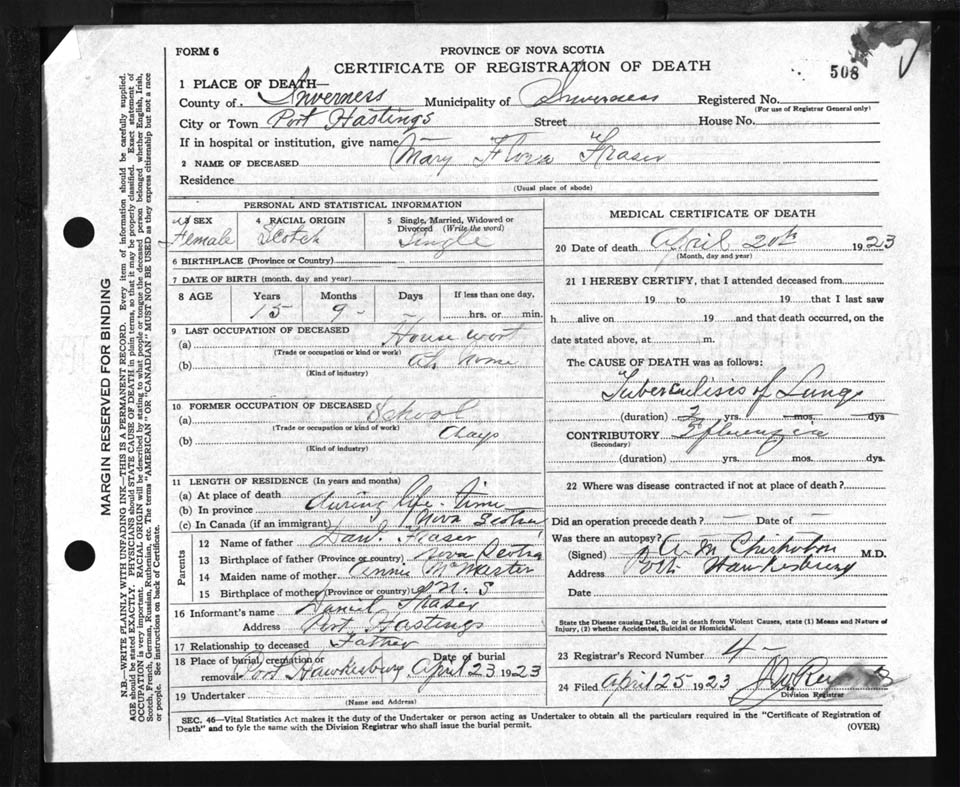 FORM 6
PROVINCE OF NOVA SCOTIA
CERTIFICATE OF REGISTRATION OF DEATH
508
1 PLACE OF DEATH—
County of Inverness Municipality of Inverness Registered No.
(For use of Registrar General only)
City or Town Port Hastings Street House No.
If in hospital or institution, give name
2 NAME OF DECEASED Mary Flora Fraser
Residence
(Usual place of abode)
PERSONAL AND STATISTICAL INFORMATION
3 SEX Female
4 RACIAL ORIGIN Scotch
5 Single, Married, Widowed or Divorced (Write the word) Single
6 BIRTHPLACE (Province or Country)
7 DATE OF BIRTH (month, day and year)
8 AGE Years 15 Months 9 - Days - If less than one day, hrs. or min.
9 LAST OCCUPATION OF DECEASED
(a) House work
(Trade or occupation or kind or work)
(b) at home
(Kind of industry)
10 FORMER OCCUPATION OF DECEASED
(a) School
(Trade or occupation or kind or work)
(b) days
(Kind of industry)
11 LENGTH OF RESIDENCE (In years and months)
(a) At place of death during life-time
(b) In province
(c) In Canada (if an immigrant) Nova Scotia
Parents
12 Name of father Fraser
13 Birthplace of father (Province or country) Nova Scotia
14 Maiden name of mother Annie McMaster
15 Birthplace of mother (Province or country) N. S
16 Informant's name Daniel Fraser
Address Port Hastings
17 Relationship to deceased Father
18 Place of burial, cremation or removal Port Hawkesbury Date of burial April 23 1923
19 Undertaker
(Name and Address)
MEDICAL CERTIFICATE OF DEATH
20 Date of death April 20th 1923
(Month, day and year)
21 I HEREBY CERTIFY, that I attended deceased from
19 to 19 that I last saw
h alive on 19 and that death occurred, on the
date stated above, at m.
The CAUSE OF DEATH was as follows:
Tuberculisis of Lungs
(duration) 2 yrs. mos. dys
CONTRIBUTORY
(Secondary)
(duration) yrs. mos. dys.
22 Where was disease contracted if not at place of death?
Did an operation precede death? - Date of -
Was there an autopsy?
(Signed) Chisholm M.D.
Address Port Hawkesbury
Date
State the Disease causing Death, or in death from Violent Causes, state (1) Means and Nature of
Injury, (2) whether Accidental, Suicidal or Homicidal.
23 Registrar's Record Number 4 -
24 Filed April 25 1923
Division Registrar
SEC. 46—Vital Statistics Act makes it the duty of the Undertaker or person acting as Undertaker to obtain all the particulars required in the "Certificate of Registration of
Death" and to fyle the same with the Division Registrar who shall issue the burial permit.
(OVER)
MARGIN RESERVED FOR BINDING
N.B.—WRITE PLAINLY WITH UNFADING INK—THIS IS A PERMANENT RECORD. Every item of information should be carefully supplied.
AGE should be stated EXACTLY. PHYSICIANS should STATE CAUSE OF DEATH in plain terms, so that it may be properly classified. Exact statement of
OCCUPATION is very important. RACIAL ORIGIN will be described by stating to what people or tongue the deceased person belonged whether English, Irish,
Scotch, French, German, Russian, Ruthenian, etc. The terms "AMERICAN" OR "CANADIAN" MUST NOT BE USED as they express citizenship but not a race
or people. See instructions on back of Certificate.